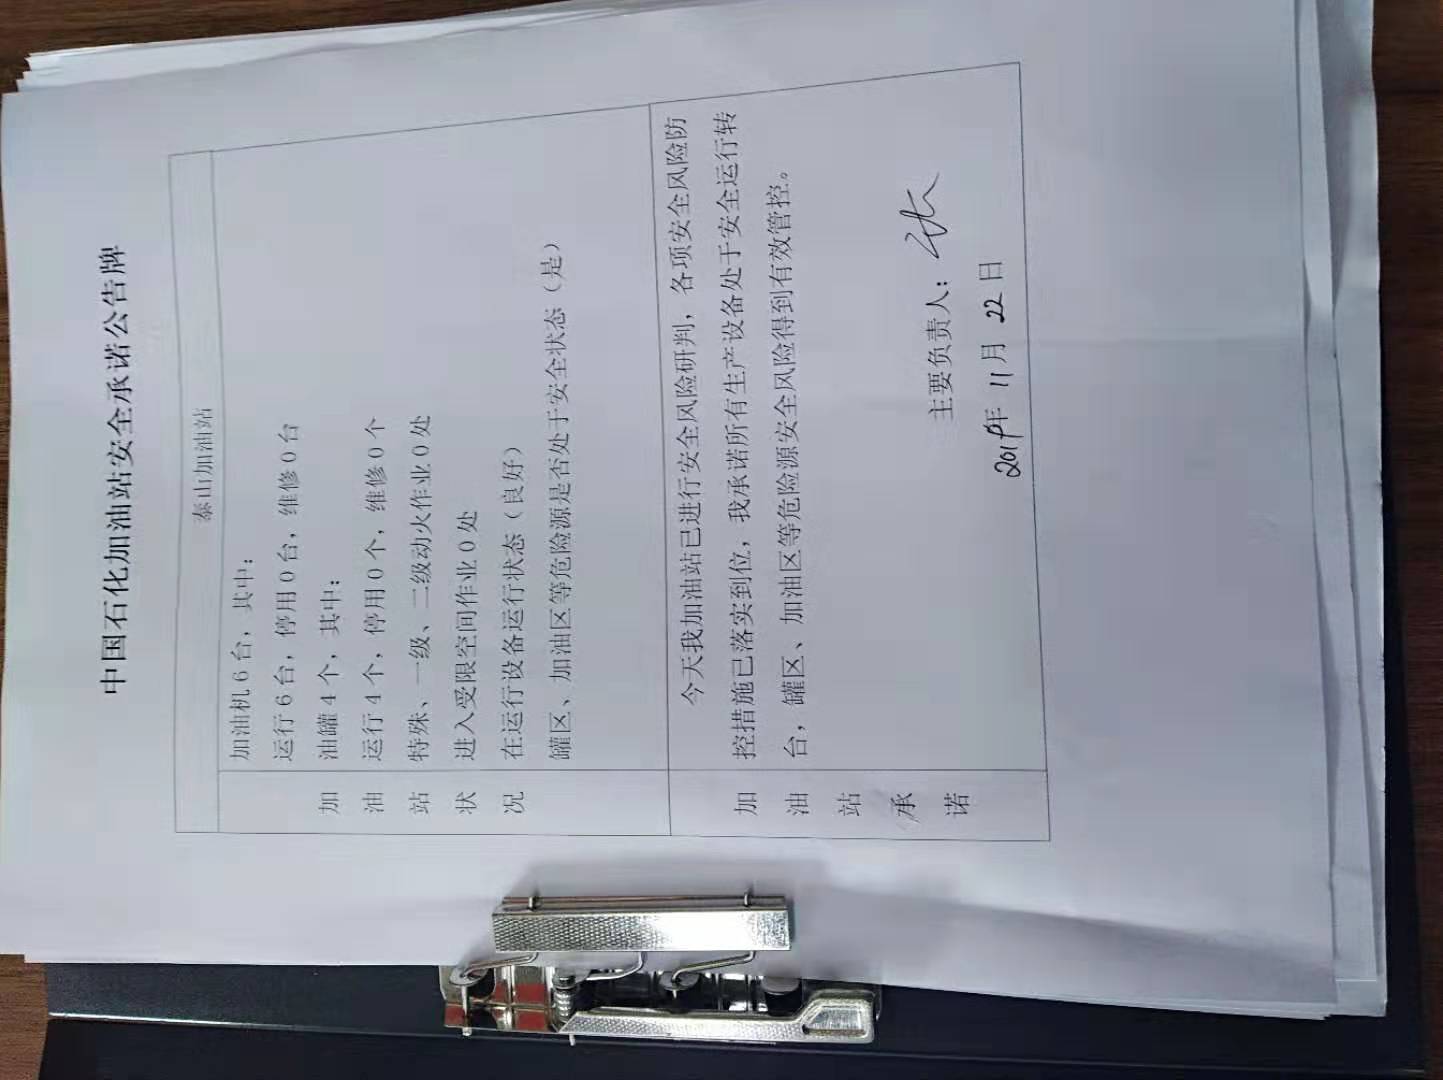 中国石化加油站安全承诺公告牌
泰山加油站
加油站状况
加油机6台，其中：
运行6台，停用0台，维修0台
油罐4个，其中：
运行4个，停用0个，维修0个
特殊、一级、二级动火作业0处
进入受限空间作业0处
在运行设备运行状态（良好）
罐区、加油区等危险源是否处于安全状态（是）
加油站承诺
今天我加油站已进行安全风险研判，各项安全风险防
控措施已落实到位，我承诺所有生产设备处于安全运行转
台，罐区、加油区等危险源安全风险得到有效管控。
主要负责人：
2019年 11月 22日